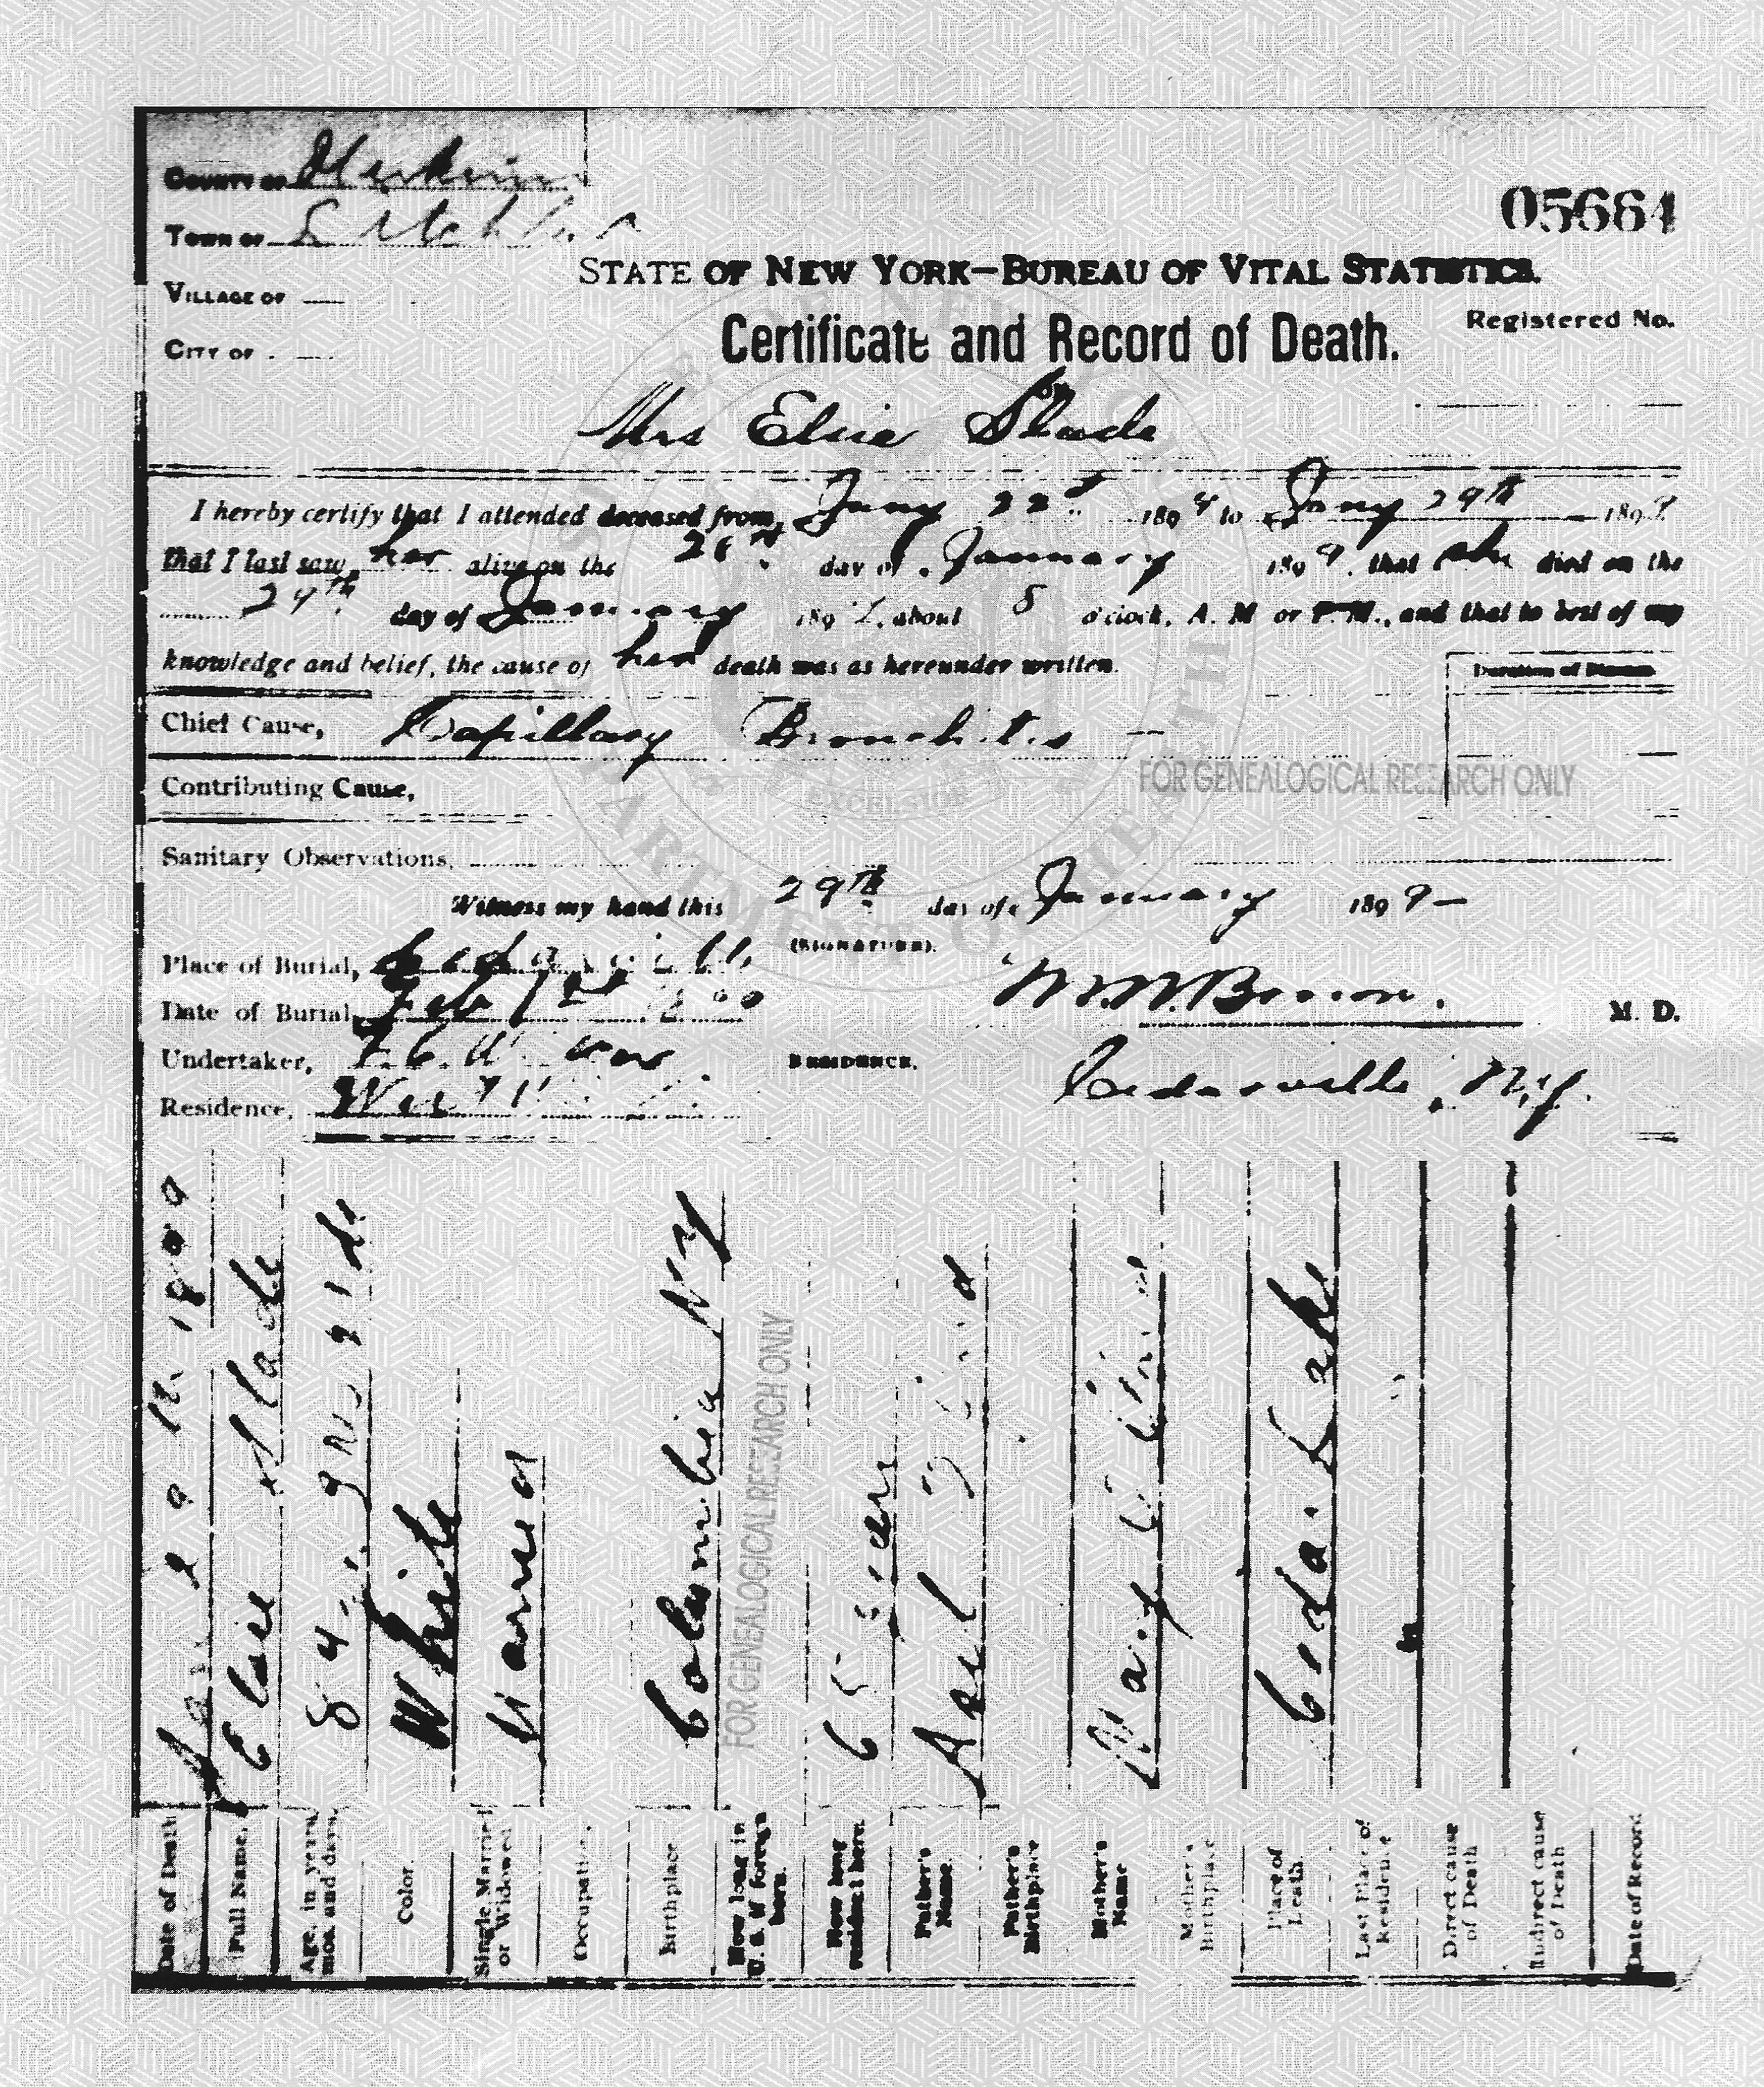 COUNTY OF Herkimer
TOWN OF Litchfield
VILLAGE OF —
CITY OF . —
05664
STATE OF NEW YORK—BUREAU OF VITAL STATISTICS.
Certificate and Record of Death.
Registered No.
Mrs Elsie Slade
I hereby certify that I attended deceased from Jany 22d 1899 to Jany 29th 1899
that I last saw her alive on the day of January 1899, that she died on the
29th day of January 189 , about 8 o'clock, A. M or P. M., and that to best of my
knowledge and belief, the cause of her death was as hereunder written.
Duration of Disease
Chief Cause, Capillary Bronchitis —
FOR GENEALOGICAL RESEARCH ONLY
Contributing Cause,
EXCELSIOR
Sanitary Observations,
Witness my hand this 29th day of January 1899—
(SIGNATURE).
Place of Burial, Cedarville
Date of Burial, Feb 1st
M. D.
Undertaker,
RESIDENCE, Cedarville, N.Y.
Residence,
Date of Death
Full Name, Elsie Slade
Age, in years, mos. and days, 84
Color. White
Single, Married or Widowed Married
Occupation,
Birthplace Columbia NY
FOR GENEALOGICAL RESEARCH ONLY
How long in U. S. if foreign born.
How long resident here. 65 years
Father's Name. Asel
Father's Birthplace
Mother's Name Mary
Mother's Birthplace
Place of Death. Cedar Lake
Last Place of Residence
Direct cause of Death
Indirect cause of Death
Date of Record
STATE OF NEW YORK
DEPARTMENT OF HEALTH